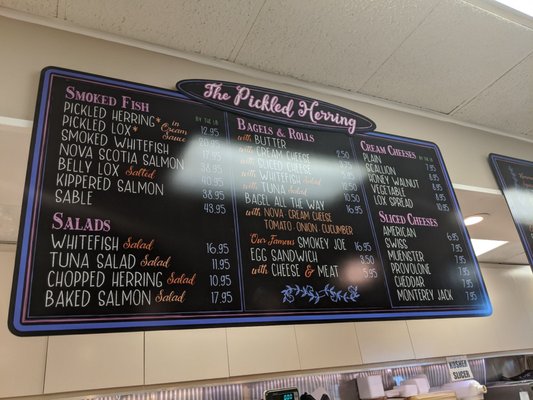 The Pickled Herring
Smoked Fish
BY THE LB
PICKLED HERRING* in Cream Sauce 12.95
PICKLED LOX*
SMOKED WHITEFISH
NOVA SCOTIA SALMON
BELLY LOX Salted
KIPPERED SALMON 38.95
SABLE 43.95
Salads
WHITEFISH Salad 16.95
TUNA SALAD Salad 11.95
CHOPPED HERRING Salad 10.95
BAKED SALMON Salad 17.95
Bagels & Rolls
with BUTTER
with CREAM CHEESE 2.50
with SLICED CHEESE
with WHITEFISH Salad
with TUNA Salad
BAGEL ALL THE WAY 16.95
with NOVA • CREAM CHEESE
TOMATO • ONION • CUCUMBER
Our Famous SMOKEY JOE 16.95
EGG SANDWICH 3.50
with CHEESE & MEAT 5.95
Cream Cheeses
BY THE LB
PLAIN 7.95
SCALLION 8.95
HONEY WALNUT 8.95
VEGETABLE 8.95
LOX SPREAD 10.95
Sliced Cheeses
AMERICAN 6.95
SWISS 7.95
MUENSTER 7.95
PROVOLONE 7.95
CHEDDAR 7.95
MONTEREY JACK 7.95
KOSHER
SLICER